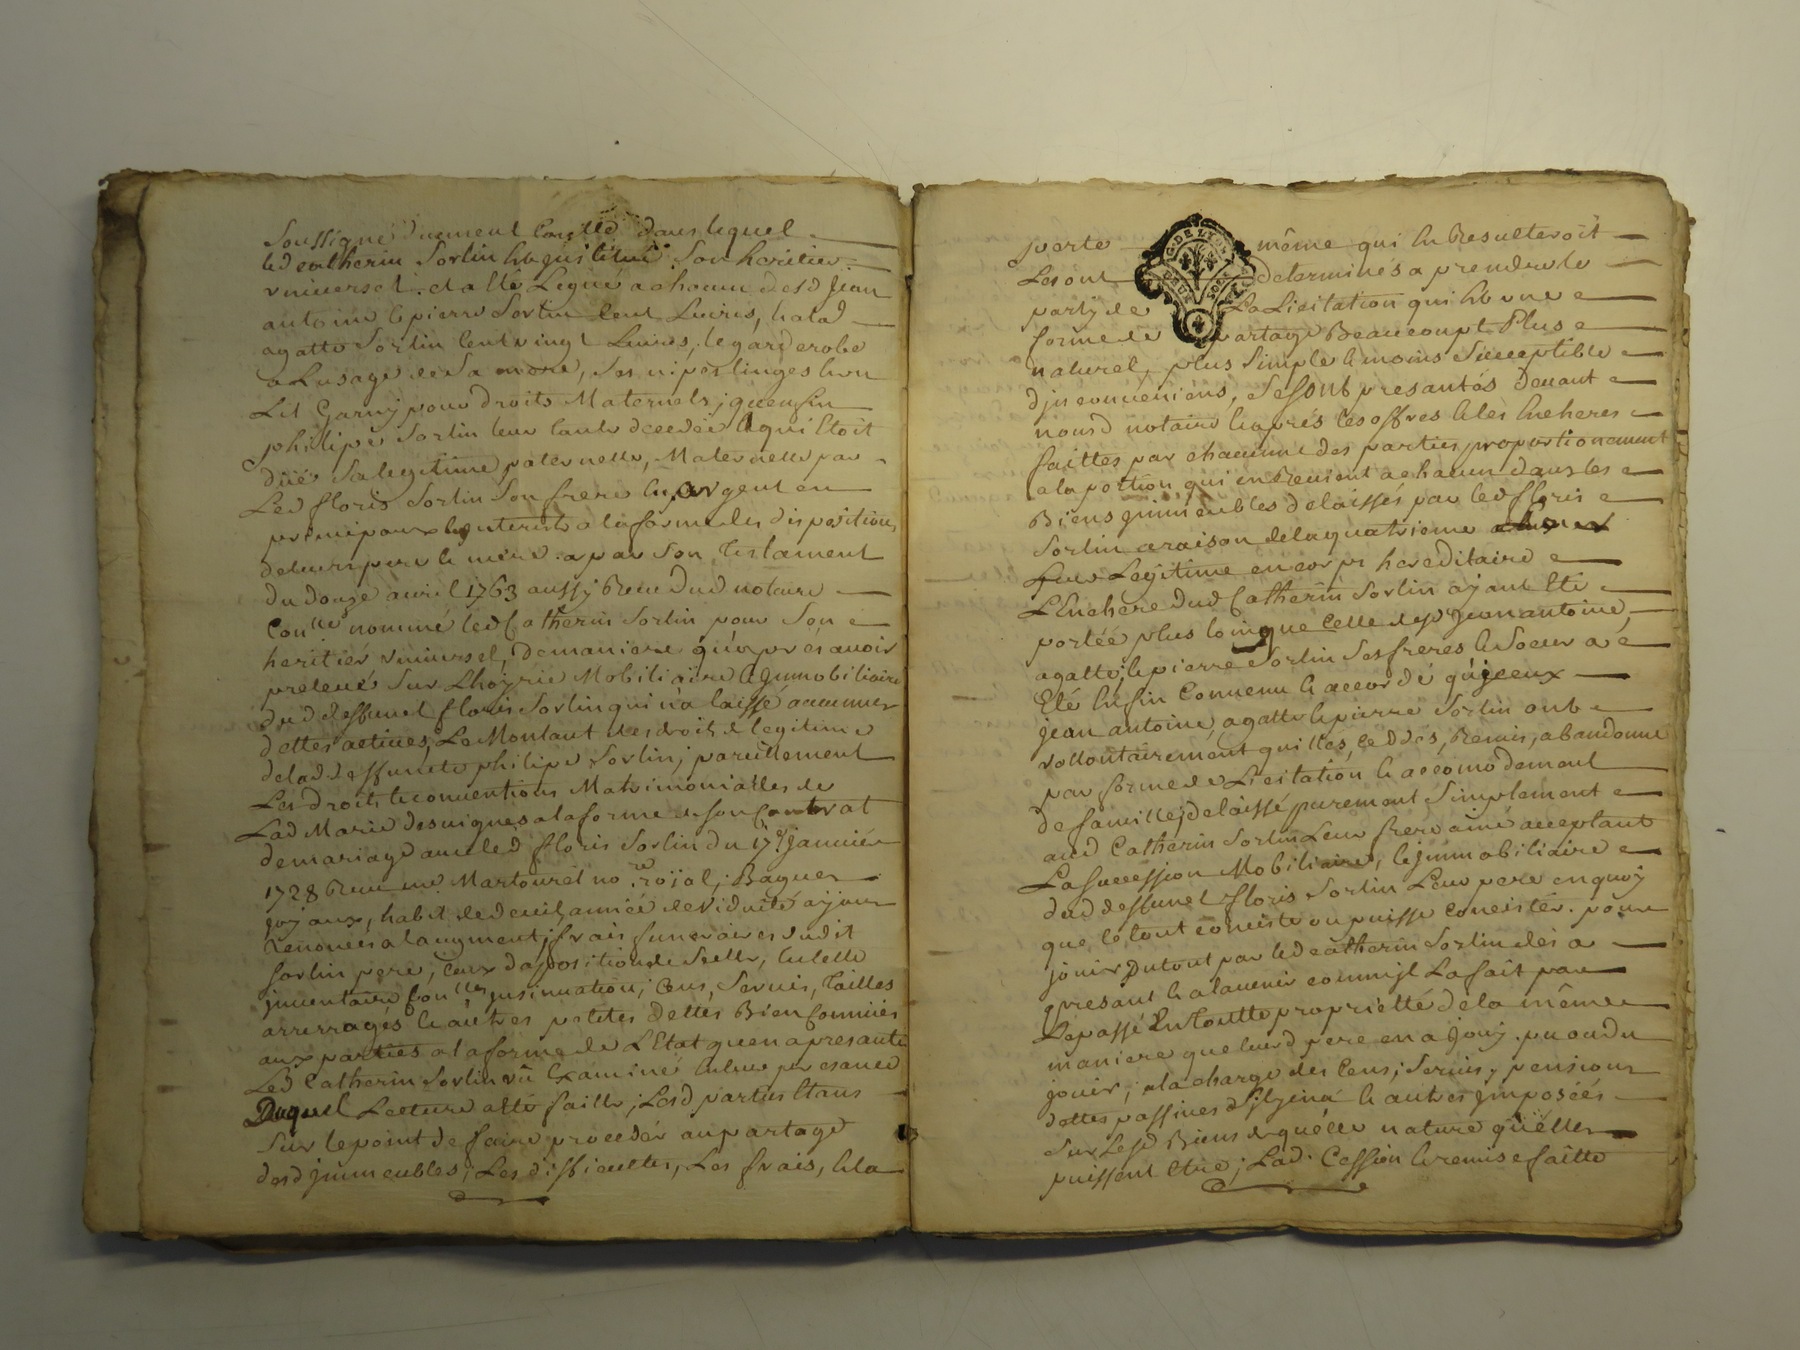 soussigné duement Conllé dans lequel
led catherin Sorlin est institué Son heritier
universel, et a êté Legué a chacun desd Jean
antoine & pierre Sorlin Cent Livres, & a lad
agatte Sorlin Cent vingt Livres, le garderobe
a Lusage de Sa mere, Ses nipes linges & un
Lit Garny pour droits Maternels; quenfin
philipe Sorlin leur tante decedée a qui Etoit
düe Sa legitime paternelle, Maternelle par
Led floris Sorlin Son frere en argent en
principaux & interets a la forme des dispositions
de leurs pere & mere a par Son Testament
du douze avril 1763 aussy Recu dud notaire
Conllé nommé led Catherin Sorlin pour Son
heritier universel, de maniere qu'apres avoir
prelevés Sur Lhoyrie Mobiliaire & Immobiliaire
dud deffunct floris Sorlin qui n'a laissé aucunnes
dettes actives, Le Montant des droits de legitime
de lad deffuncte philipe Sorlin; pareillement
Les droits & conventions Matrimonialles de
Lad Marie desvignes a la forme de son Contrat
de mariage avec led floris Sorlin du 17e Janvier
1728 Recu me Martouret nore roïal; Bagues
joyaux, habit de deuil, année de viduité ayant
Renoncés a laugment; frais funeraires dudit
Sorlin pere, Ceux dapositions de Scellé, Celle
inventaire Conlles insinuation; Cens, Servis, Tailles
arrerragés & autres petites dettes Bien Connües
aux parties a la forme de L'Etat quen a presanté
Led Catherin Sorlin vû Examiné
Duquel Lecture a êté faitte; Lesd parties Etans
Sur le point de faire proceder au partage
desd immeubles; Les difficultes, Les frais, & la
perte même qui En Resulteroit
Les ont determinés a prendre le
party de La Licitation qui Est une
forme de partage Beaucoupt Plus
naturel, plus Simple & moins Susceptible
d'inconveniens, Se sont presantés devant
nousd notaire & aprés les offres & les Encheres
faittes par chacune des parties proportionement
a la portion qui en Revient a chacun dans les
Biens immeubles delaissés par led floris
Sorlin a raison de la quatrieme
Leur Legitime en corps hereditaire
L'Enchere dud Catherin Sorlin ayant Eté
portée plus loing que Celle desd Jean antoine,
agatte, & pierre Sorlin Ses freres & Soeur a
Eté Enfin Convenu & accordé que iceux
jean antoine, agatte & pierre Sorlin ont
vollontairement quittés, Ceddés, Remis, abandonné
par forme de Licitation & accomodement
de famille, delaissé purement Simplement
aud Catherin Sorlin Leur frere ainé acceptant
La Succession Mobiliaire, & immobiliaire
dud deffunct floris Sorlin Leur pere en quoy
que le tout conciste ou puisse concister. pour
jouir Du tout par led catherin Sorlin dés a
present & a lavenir comm'jl La fait par
Le passé En toutte proprietté de la même
maniere que leurd pere en a Jouy. pu ou du
jouir, a la charge des Cens, Servis, pensions
dettes passives & autres jmposéés
Sur Lesd Biens de quelle nature quelles
puissent Etre; Lad. Cession & remise faitte